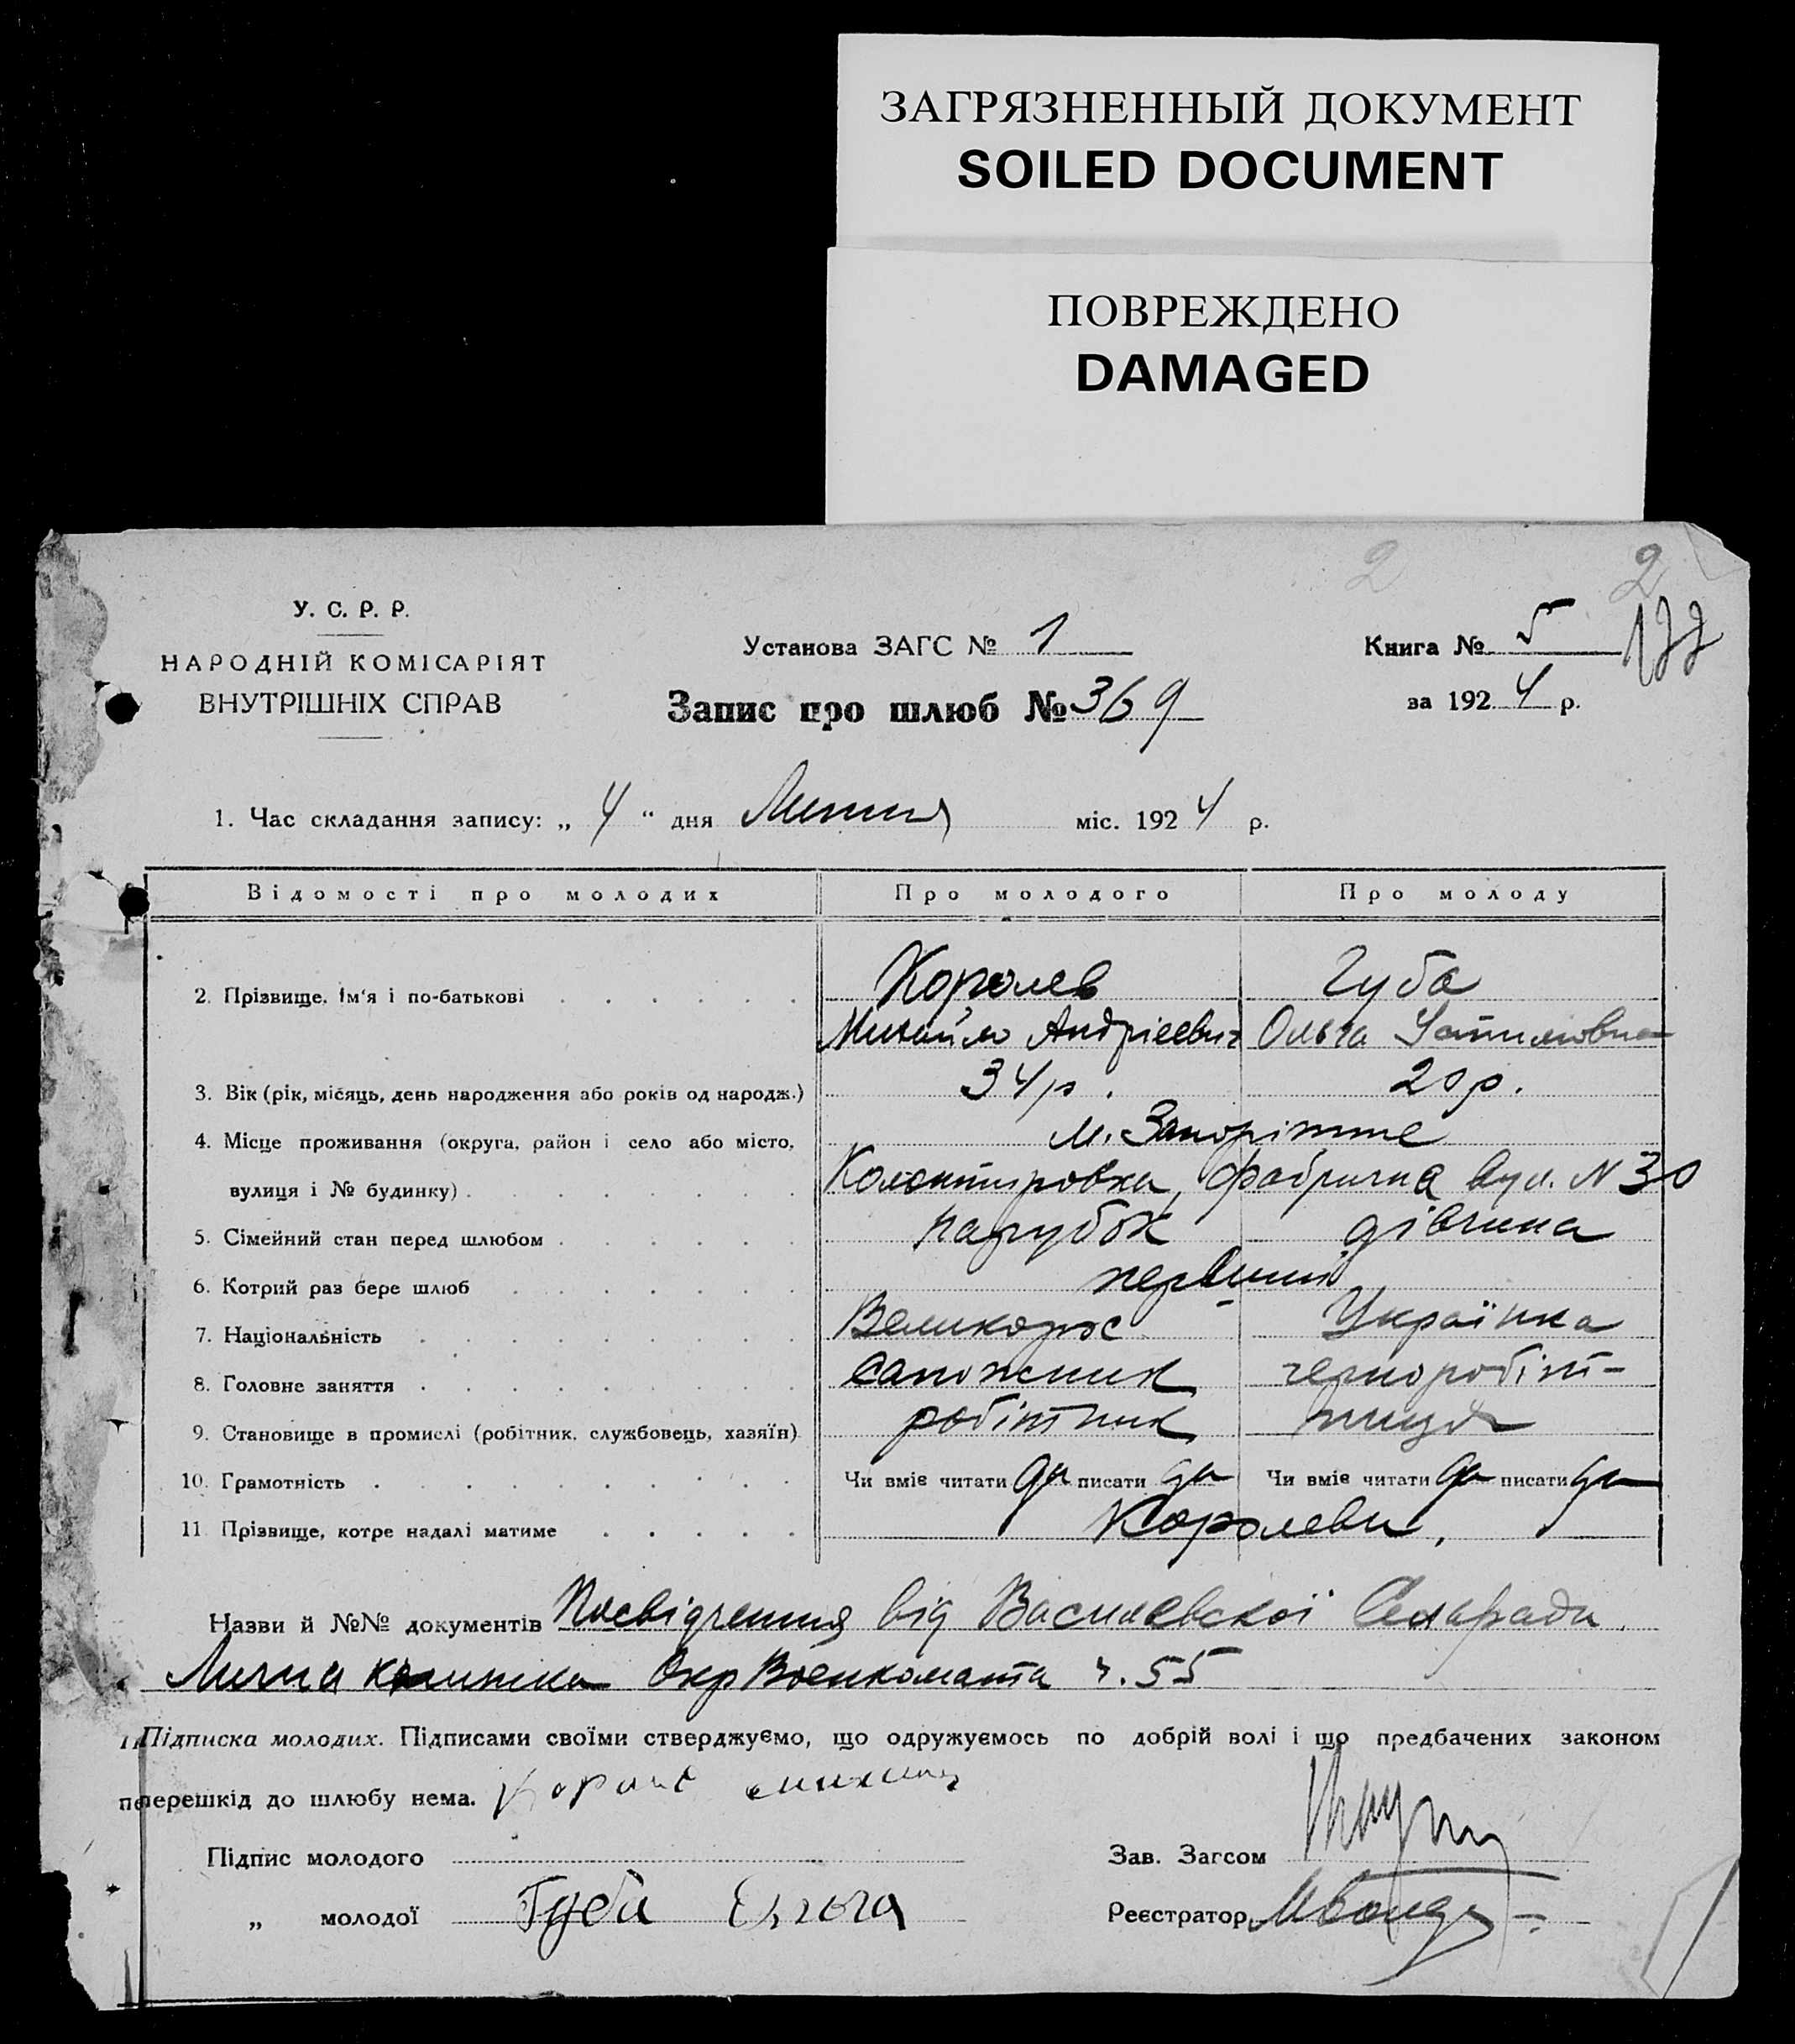 ЗАГРЯЗНЕННЫЙ ДОКУМЕНТ
SOILED DOCUMENT
ПОВРЕЖДЕНО
DAMAGED
2 2
У. С. Р. Р.
НАРОДНІЙ КОМІСАРІЯТ
ВНУТРІШНІХ СПРАВ
Установа ЗАГС № 1
Запис про шлюб № 369
Книга № 5
за 1924 р.
1. Час складання запису: „ 4 “ дня Липня міс. 1924 р.
Відомості про молодих Про молодого Про молоду
2. Прізвище. Ім'я і по-батькові Королев Губа
Михайло Андрієевич Ольга
3. Вік (рік, місяць, день народження або років од народж.) 34 р. 20 р.
4. Місце проживання (округа, район і село або місто, м. Запоріжже
вулиця і № будинку) Фабрична вул. N 30
5. Сімейний стан перед шлюбом парубок дівчина
6. Котрий раз бере шлюб первший
7. Національність Великорос Українка
8. Головне заняття сапожник чорноробіт-
9. Становище в промислі (робітник, службовець, хазяїн) робітник ница
10. Грамотність Чи вміє читати да писати да Чи вміє читати да писати да
11. Прізвище, котре надалі матиме Королеви.
Назви й №№ документів Посвідчення від Василевскої Сельради.
Лична книжка ОкрВоенкомата ч. 55
Підписка молодих. Підписами своїми стверджуємо, що одружуємось по добрій волі і що предбачених законом
перешкід до шлюбу нема.
Підпис молодого
Зав. Загсом
„ молодої Губа
Реєстратор